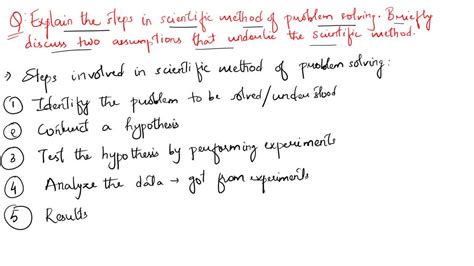 Q: Explain the steps in scientific method of problem solving. Briefly
discuss two assumptions that underlie the scientific method.
→ Steps involved in scientific method of problem solving:
① Identify the problem to be solved/understood
② Contruct a hypothesis
③ Test the hypothesis by performing experiments
④ Analyze the data → got from experiments
⑤ Results